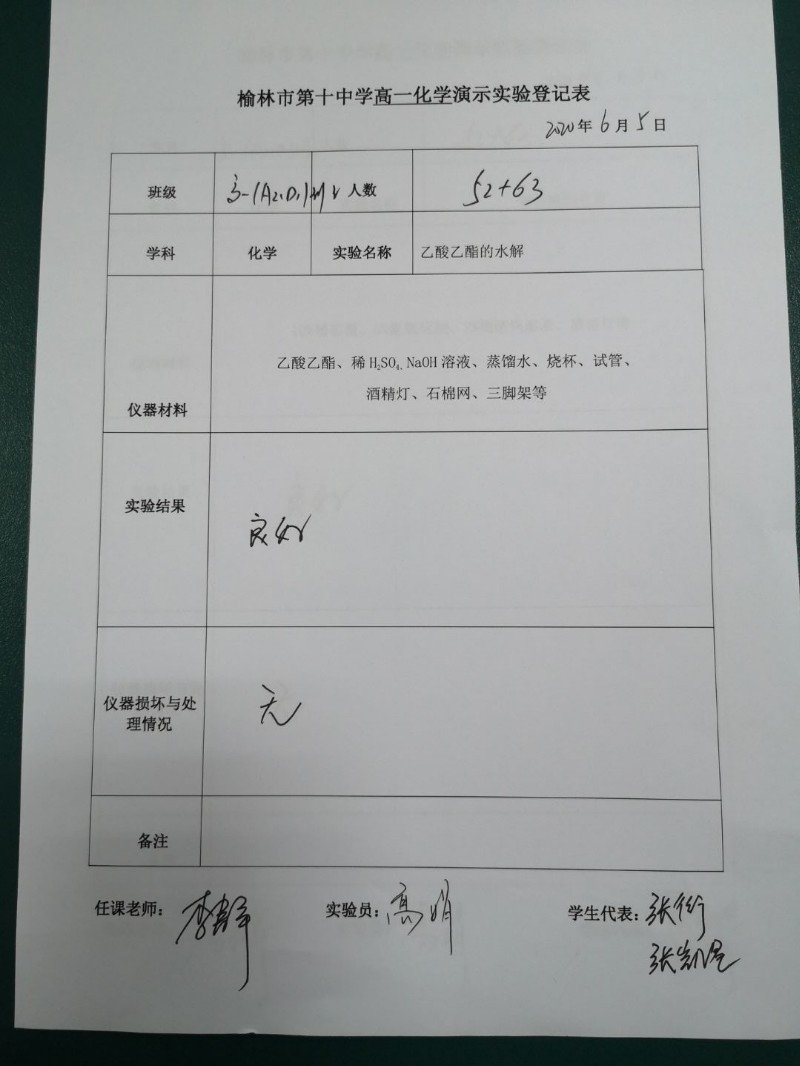 榆林市第十中学高一化学演示实验登记表
2020年6月5日
班级 人数 52+63
学科 化学 实验名称 乙酸乙酯的水解
仪器材料
乙酸乙酯、稀H₂SO₄、NaOH溶液、蒸馏水、烧杯、试管、
酒精灯、石棉网、三脚架等
实验结果
良好
仪器损坏与处
理情况
无
备注
任课老师: 实验员:高娟 学生代表:张衍